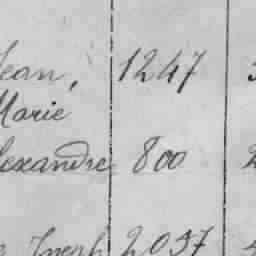 Jean, 1247
Marie
lexandre 800
Joseph 2037